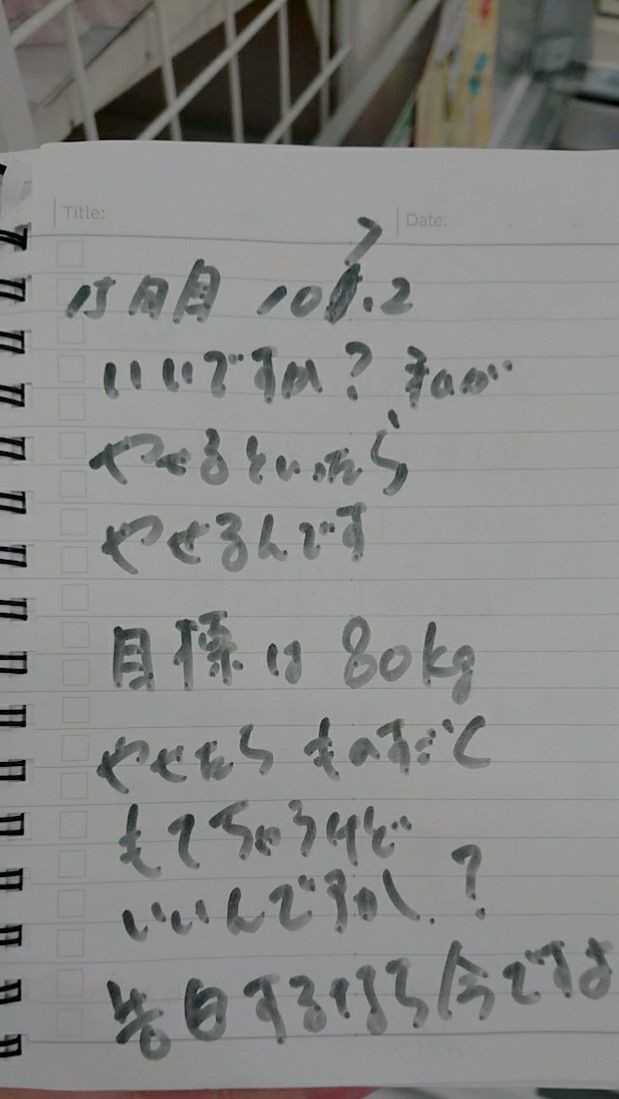 Title: Date:
7
15日目 10.2
いいですか?
やせるといったら
やせるんです
目標は 80kg
やせたら ものすごく
もてちゃうけど
いいんですか?
告白するなら今ですよ